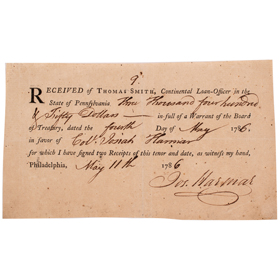 9.
RECEIVED of THOMAS SMITH, Continental Loan-Officer in the
State of Pennsylvania three thousand four hundred
& Fifty Dollars — in full of a Warrant of the Board
of Treasury, dated the fourth Day of May 1786.
in favor of Colo. Josiah Harmar
for which I have signed two Receipts of this tenor and date, as witness my hand,
Philadelphia. May 11th 1786
Jos. Harmar